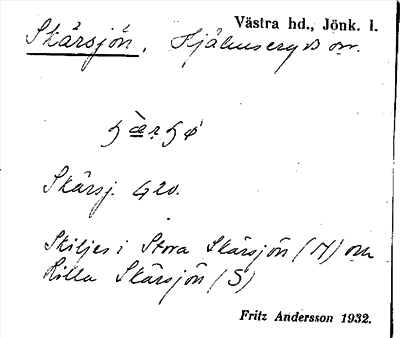 Västra hd., Jönk. l.
Skärsjön, Hjälmseryds sn.
Skärsj. G20.
Skiljes i Stora Skärsjön (N) om
Lilla Skärsjön (S)
Fritz Andersson 1932.